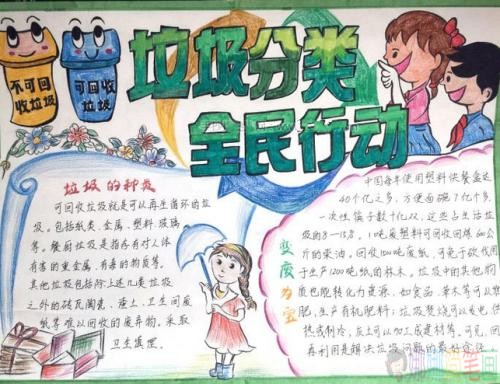 不可回
收垃圾
可回收
垃圾
垃圾分类
全民行动
垃圾的种类
可回收垃圾就是可以再生循环的垃
圾。包括纸类、金属、塑料、玻璃
等。餐厨垃圾是指各有对人体
有害的重金属、有毒的物质等。
其他垃圾包括除上述几类垃圾
之外的砖瓦陶瓷、渣土、卫生间废
纸等难以回收的废弃物。采取
卫生填埋
变废为宝
中国每年使用塑料快餐盒达
40个亿之多,方便面碗7亿个多
一次性筷子数十亿双,这些占生活垃
圾的3—15%。1吨废塑料可回收回炼600公
斤的柴油。回收1500吨废纸,可免于砍伐用
于生产1200吨纸的林木。垃圾中的其他物
质也能转化为资源,如食品、草木等可以堆
肥,生产有机肥料;垃圾焚烧可以发电、供
热或制冷;灰土可以加工成建材等。可见,回
再利用是解决垃圾问题的最好途径